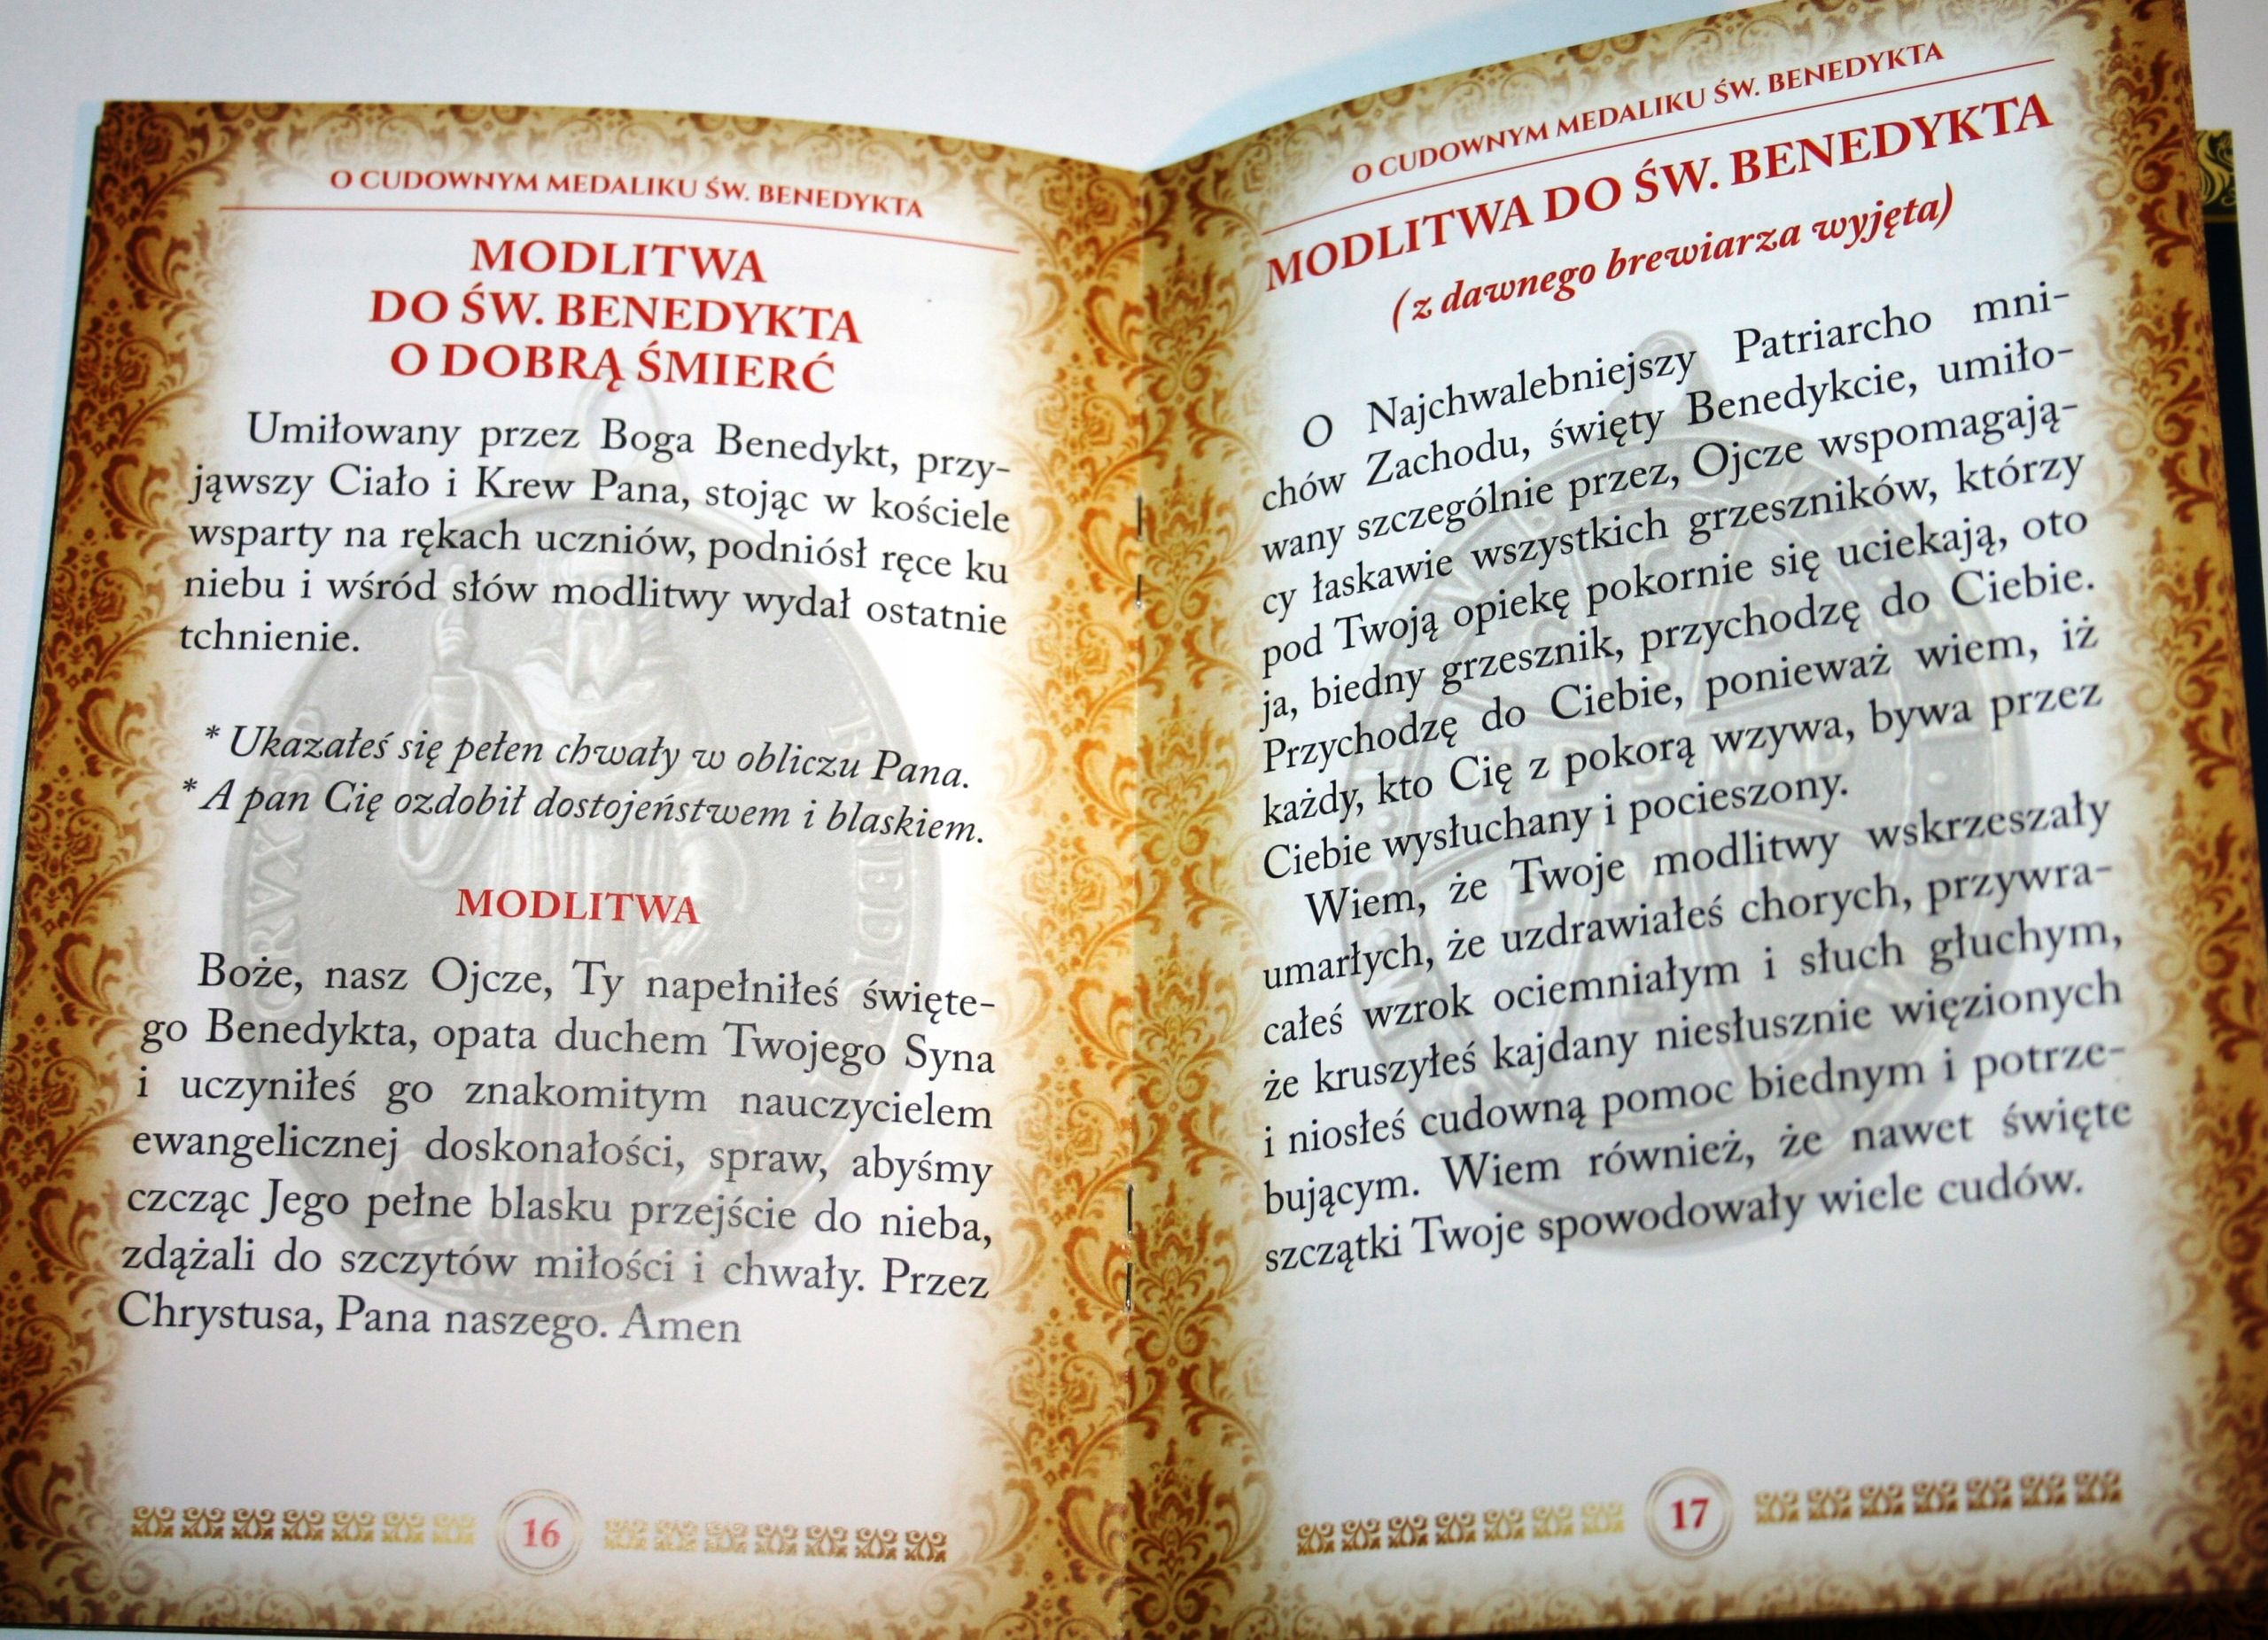 O CUDOWNYM MEDALIKU ŚW. BENEDYKTA
MODLITWA
DO ŚW. BENEDYKTA
O DOBRĄ ŚMIERĆ
Umiłowany przez Boga Benedykt, przy-
jąwszy Ciało i Krew Pana, stojąc w kościele
wsparty na rękach uczniów, podniósł ręce ku
niebu i wśród słów modlitwy wydał ostatnie
tchnienie.
* Ukazałeś się pełen chwały w obliczu Pana.
* A pan Cię ozdobił dostojeństwem i blaskiem.
MODLITWA
Boże, nasz Ojcze, Ty napełniłeś święte-
go Benedykta, opata duchem Twojego Syna
i uczyniłeś go znakomitym nauczycielem
ewangelicznej doskonałości, spraw, abyśmy
czcząc Jego pełne blasku przejście do nieba,
zdążali do szczytów miłości i chwały. Przez
Chrystusa, Pana naszego. Amen
16
O CUDOWNYM MEDALIKU ŚW. BENEDYKTA
MODLITWA DO ŚW. BENEDYKTA
(z dawnego brewiarza wyjęta)
O Najchwalebniejszy Patriarcho mni-
chów Zachodu, święty Benedykcie, umiło-
wany szczególnie przez, Ojcze wspomagają-
cy łaskawie wszystkich grzeszników, którzy
pod Twoją opiekę pokornie się uciekają, oto
ja, biedny grzesznik, przychodzę do Ciebie.
Przychodzę do Ciebie, ponieważ wiem, iż
każdy, kto Cię z pokorą wzywa, bywa przez
Ciebie wysłuchany i pocieszony.
Wiem, że Twoje modlitwy wskrzeszały
umarłych, że uzdrawiałeś chorych, przywra-
całeś wzrok ociemniałym i słuch głuchym,
że kruszyłeś kajdany niesłusznie więzionych
i niosłeś cudowną pomoc biednym i potrze-
bującym. Wiem również, że nawet święte
szczątki Twoje spowodowały wiele cudów.
17